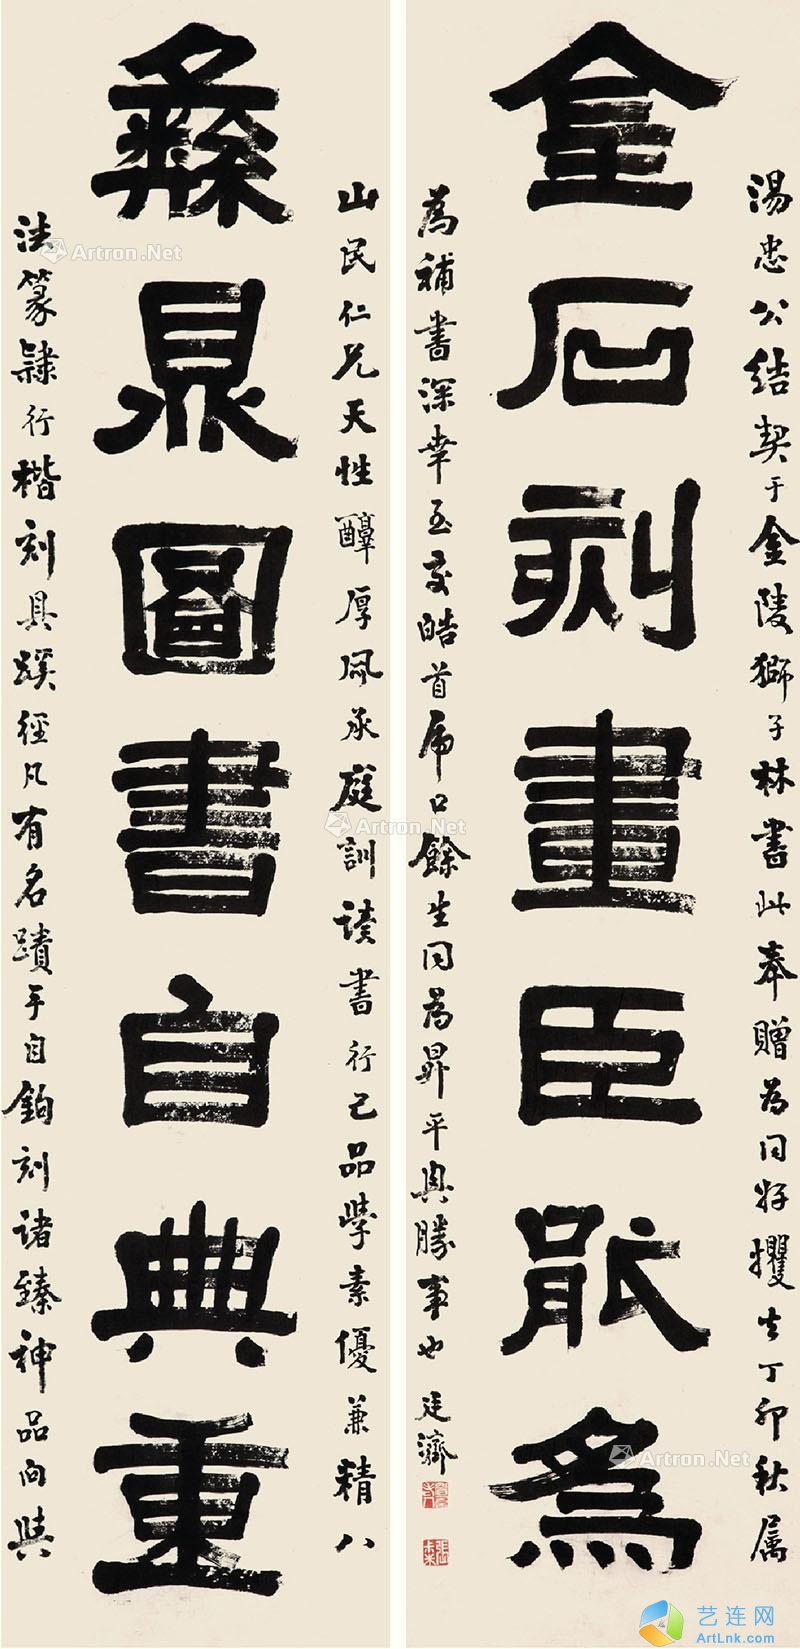 金石刻畫臣能為
彝鼎圖書自典重
山民仁兄天性醇厚夙承庭訓讀書行己品學素優兼精八
法篆隸行楷刻具蹊徑凡有名蹟手自鉤刻諸臻神品向與
湯忠公結契于金陵獅子林書此奉贈為同好攫去丁卯秋属
為補書深幸至交皓首虎口餘生同為昇平興勝事也 廷濟
Artron.Net
Artron.Net
Artron.Net
Artron.Net
艺连网
ArtLnk.com